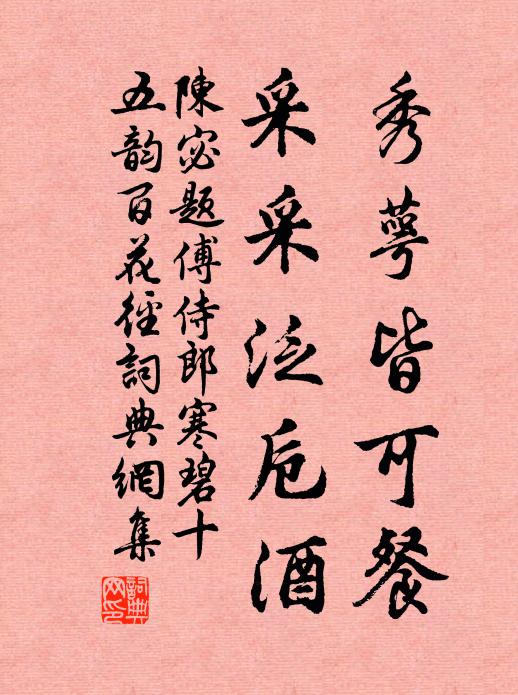 秀萼皆可餐
采采泛卮酒
陳宓題傅侍郎寒碧十
五韵百花徑詞典網集
詞典網印